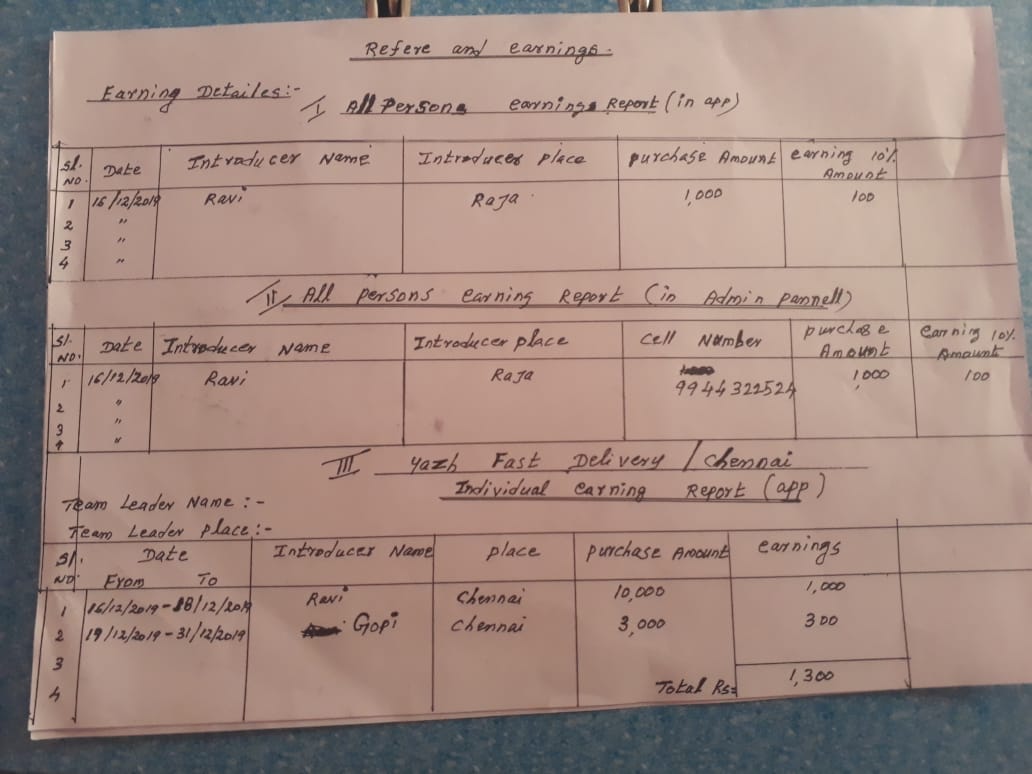 Refere and earnings.
Earning Detailes:-
I All Persons earnings Report (in app)
Sl. NO. Date Introducer Name Introducer place purchase Amount earning 10% Amount
1 16/12/2019 Ravi Raja 1,000 100
2 "
3 "
4 "
II All persons earning Report (in Admin pannell)
Sl. NO. Date Introducer Name Introducer place Cell Number purchase Amount earning 10% Amount
1 16/12/2019 Ravi Raja 9944322524 1,000 100
2 "
3 "
4 "
III Yazh Fast Delivery / Chennai
Individual earning Report (app)
Team Leader Name :-
Team Leader place :-
Sl. NO. Date From To Introducer Name place purchase Amount earnings
1 16/12/2019 - 18/12/2019 Ravi Chennai 10,000 1,000
2 19/12/2019 - 31/12/2019 Gopi Chennai 3,000 300
3
4 Total Rs= 1,300